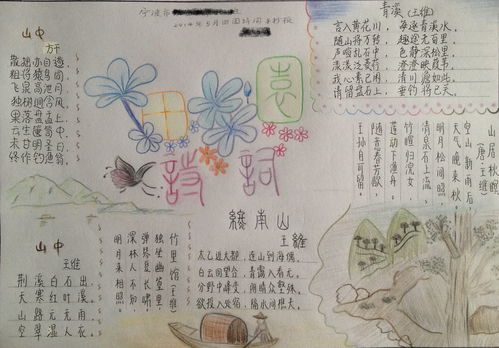 宁波市
2014年5月田园诗词手抄报
山中
方干
散拙亦自遇
粗将猿鸟同
飞泉高泻月
独树迥含风
果落盘盂上
云生箧笥中
未甘明圣日
终作钓渔翁
田园
詩詞
青溪（王维）
言入黄花川，每逐青溪水。
随山将万转，趣途无百里。
声喧乱石中，色静深松里。
漾漾泛菱荇，澄澄映葭苇。
我心素已闲，清川澹如此。
请留盘石上，垂钓将已矣。
山居秋暝
（唐·王维）
空山新雨后，
天气晚来秋。
明月松间照，
清泉石上流。
竹喧归浣女，
莲动下渔舟。
随意春芳歇，
王孙自可留。
山中
王维
荆溪白石出，
天寒红叶
山路元无雨，
空翠湿人衣。
竹里馆（王维）
独坐幽篁里
弹琴复长啸
深林人不知
明月来相照
終南山
王维
太乙近天都，连山到海隅。
白云回望合，青霭入看无。
分野中峰变，阴晴众壑殊。
欲投人处宿，隔水问樵夫。